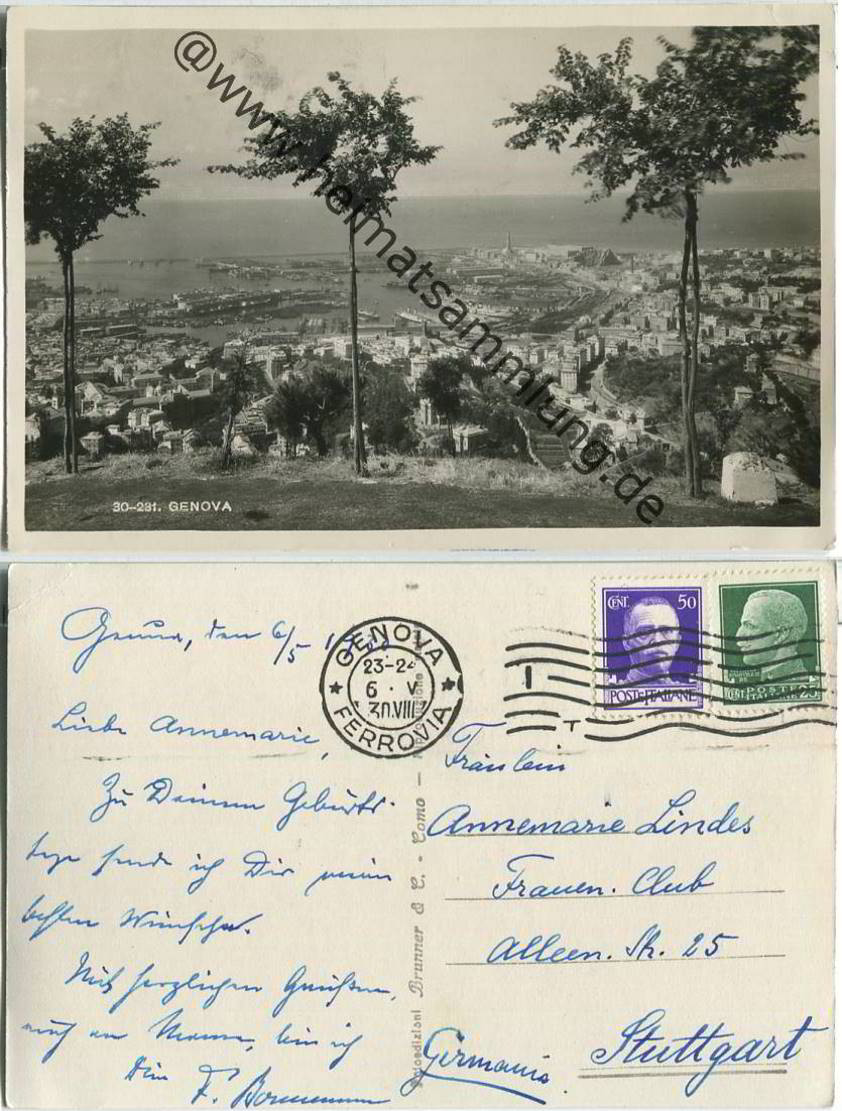 @www.heimatsammlung.de
30-281. GENOVA
Genua, den 6/5
GENOVA
23-24
6 · V
30.VIII
FERROVIA
CENT. 50
POSTE ITALIANE
CENT. 25
Liebe Annemarie,
Zu Deinem Geburts-
tage sende ich Dir meine
besten Wünsche.
Mit herzlichen Grüßen,
auch an Mama, bin ich
Dein
Fräulein
Annemarie Lindes
Frauen. Club
Alleen. Str. 25
Stuttgart
Germania.
Brunner & C. - Como -